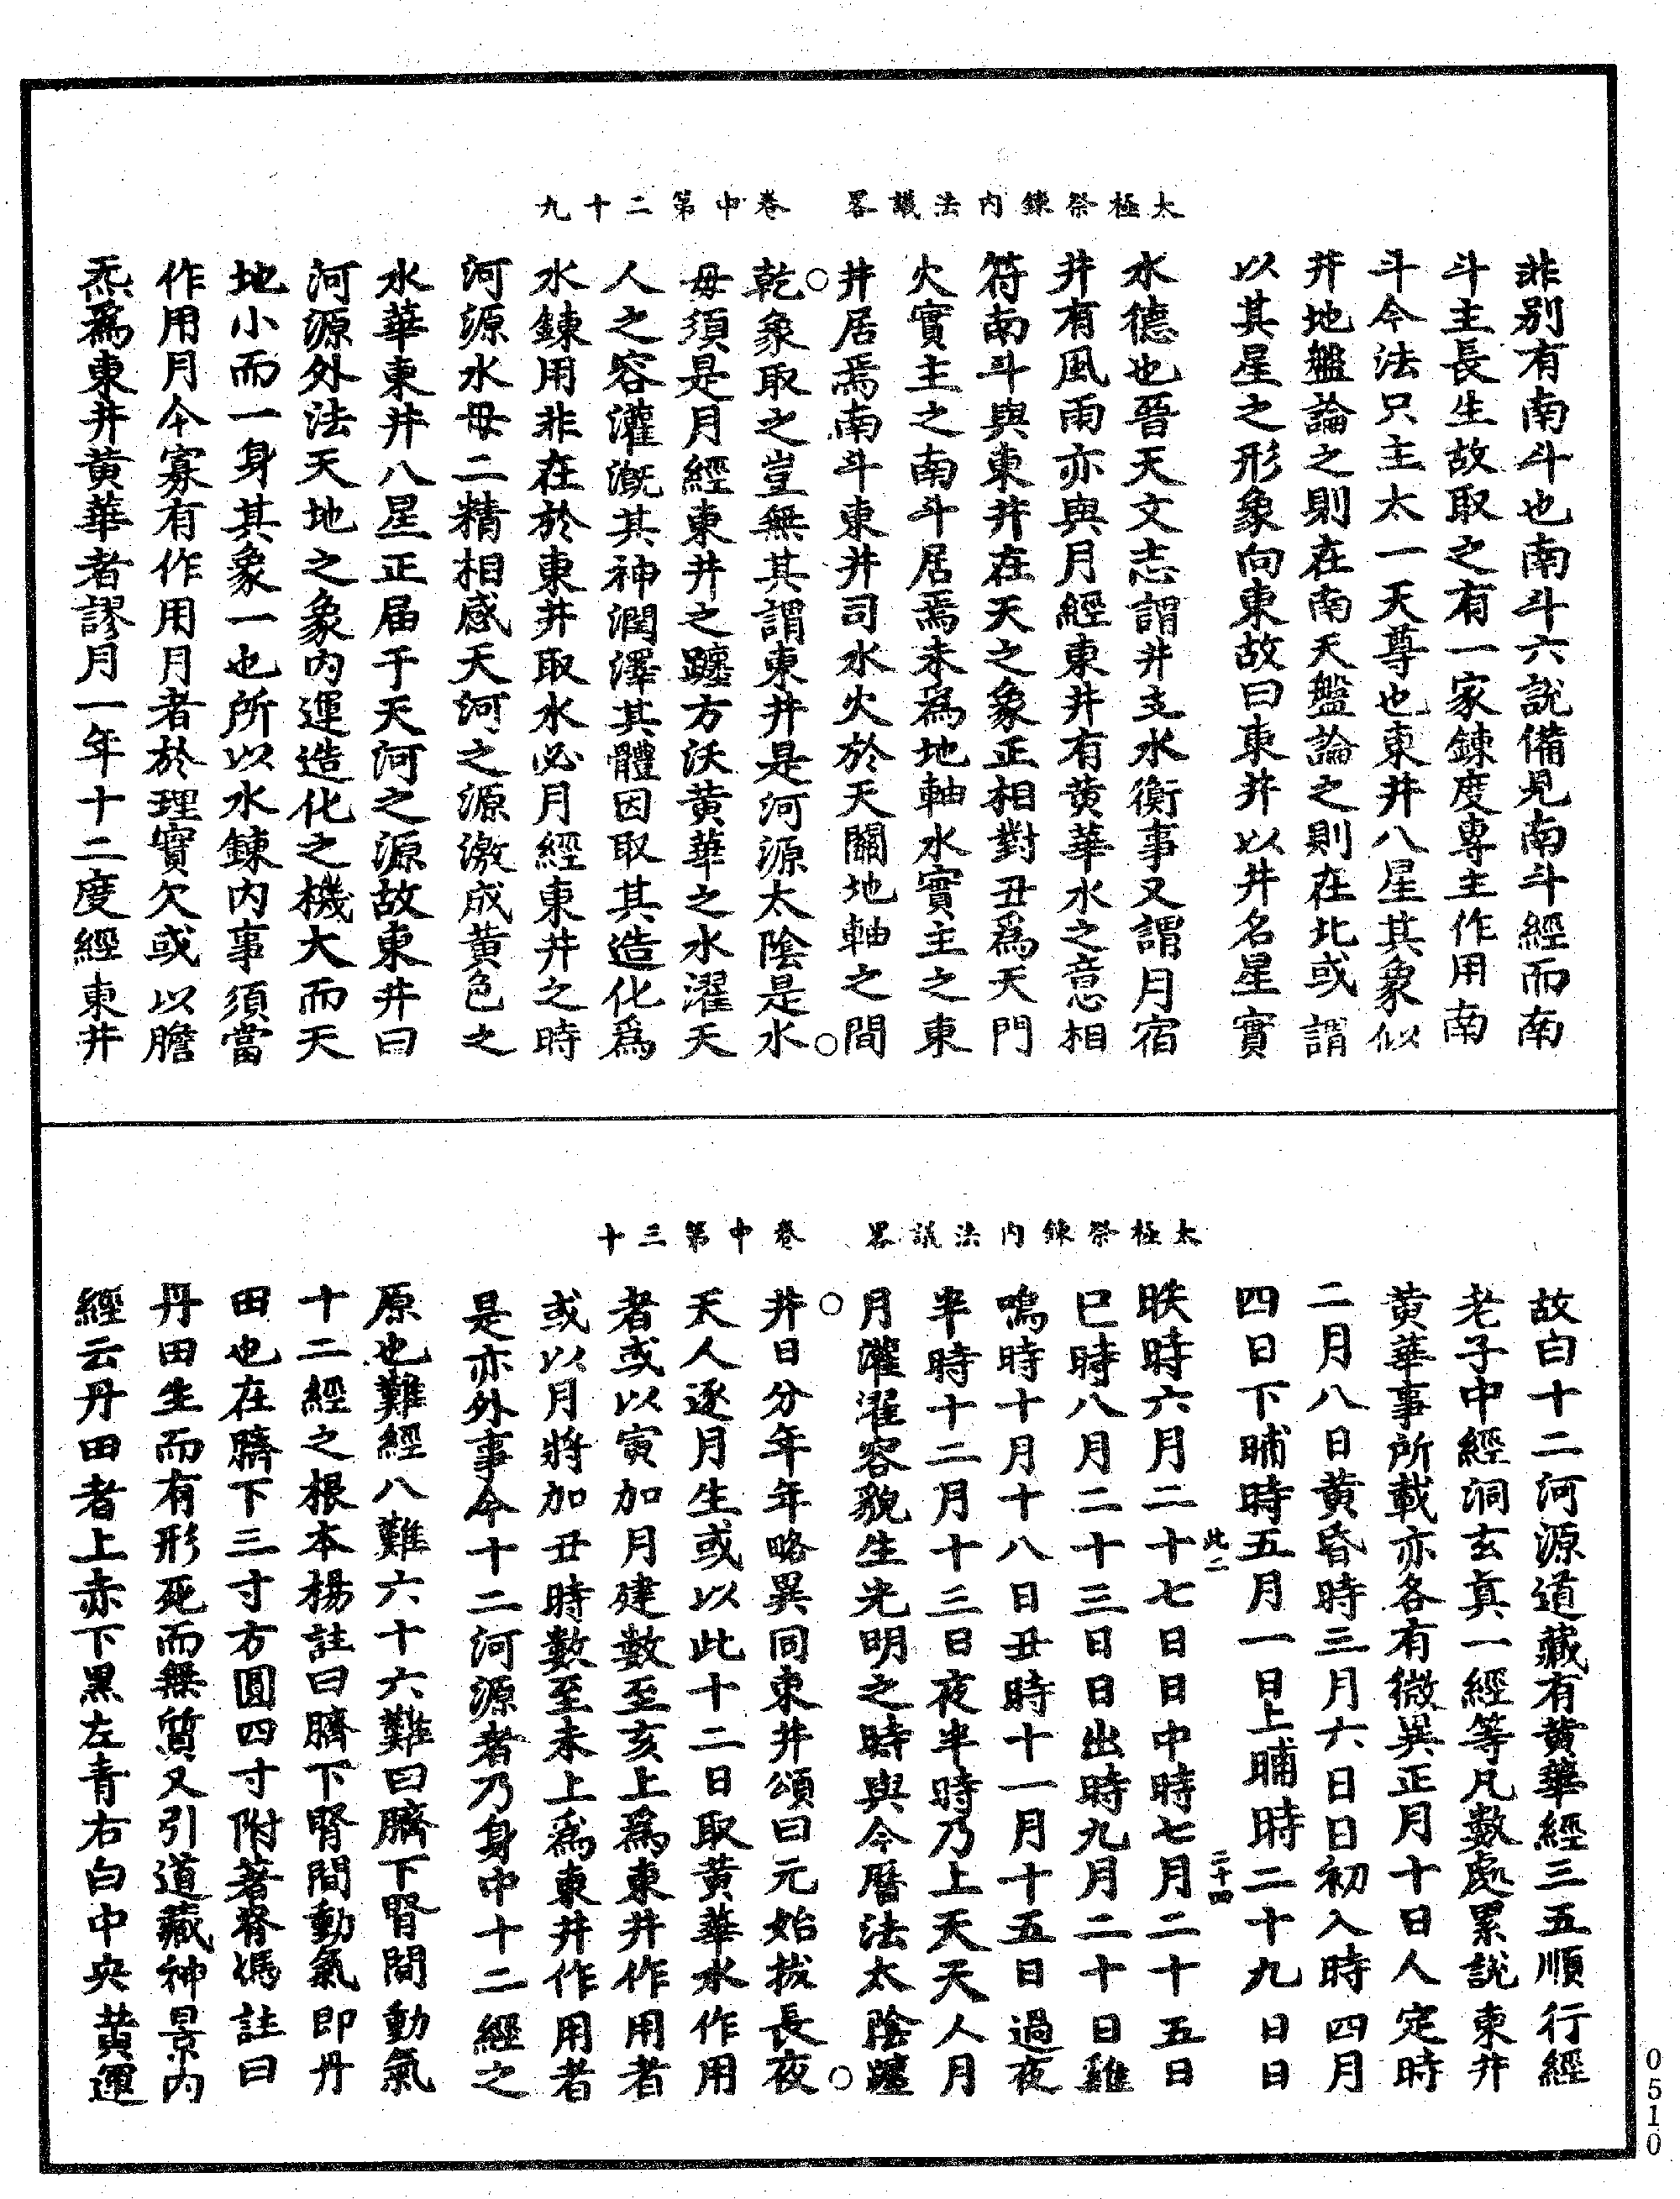 太極祭鍊內法議畧　卷中第二十九
非別有南斗也南斗六說備見南斗經而南
斗主長生故取之有一家鍊度專主作用南
斗今法只主太一天尊也東井八星其象似
井地盤論之則在南天盤論之則在北或謂
以其星之形象向東故曰東井以井名星實
水德也晉天文志謂井主水衡事又謂月宿
井有風雨亦與月經東井有黃華水之意相
符南斗與東井在天之象正相對丑爲天門
火實主之南斗居焉未爲地軸水實主之東
井居焉南斗東井司水火於天關地軸之間
○乾象取之豈無其謂東井是河源太陰是水○
母須是月經東井之躔方沃黃華之水濯天
人之容灌漑其神潤澤其體因取其造化爲
水鍊用非在於東井取水必月經東井之時
河源水母二精相感天河之源激成黃色之
水華東井八星正屆于天河之源故東井曰
河源外法天地之象內運造化之機大而天
地小而一身其象一也所以水鍊內事須當
作用月今寡有作用月者於理實欠或以膽
炁爲東井黃華者謬月一年十二度經東井
太極祭鍊內法議畧　卷中第三十
故曰十二河源道藏有黃華經三五順行經
老子中經洞玄真一經等凡數處累說東井
黃華事所載亦各有微異正月十日人定時
二月八日黃昏時三月六日日初入時四月
四日下晡時五月一日上晡時二十九日日
此二　二十四
昳時六月二十七日日中時七月二十五日
巳時八月二十三日日出時九月二十日雞
鳴時十月十八日丑時十一月十五日過夜
半時十二月十三日夜半時乃上天天人月
月灌濯容貌生光明之時與今曆法太陰躔
○井日分年年略異同東井頌曰元始拔長夜○
天人逐月生或以此十二日取黃華水作用
者或以寅加月建數至亥上爲東井作用者
或以月將加丑時數至未上爲東井作用者
是亦外事今十二河源者乃身中十二經之
原也難經八難六十六難曰臍下腎間動氣
十二經之根本楊註曰臍下腎間動氣即丹
田也在臍下三寸方圓四寸附著脊馮註曰
丹田生而有形死而無質又引道藏神景內
經云丹田者上赤下黑左青右白中央黃運
0510